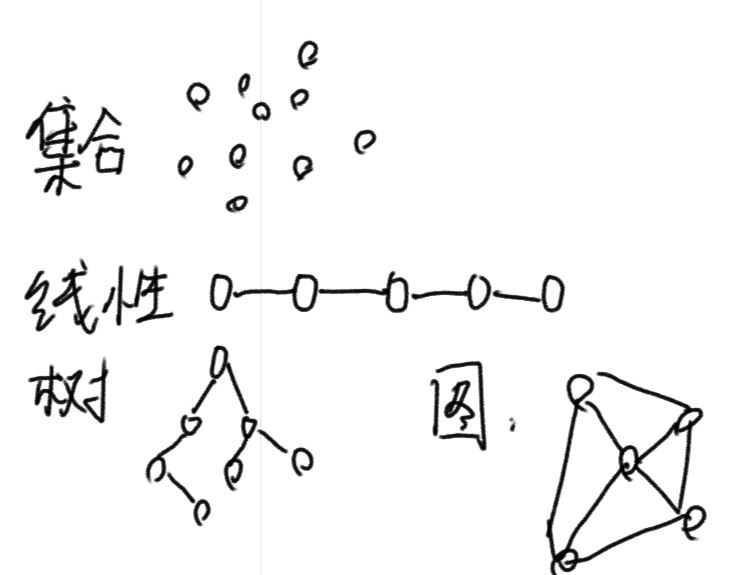 集合
线性
树
图.